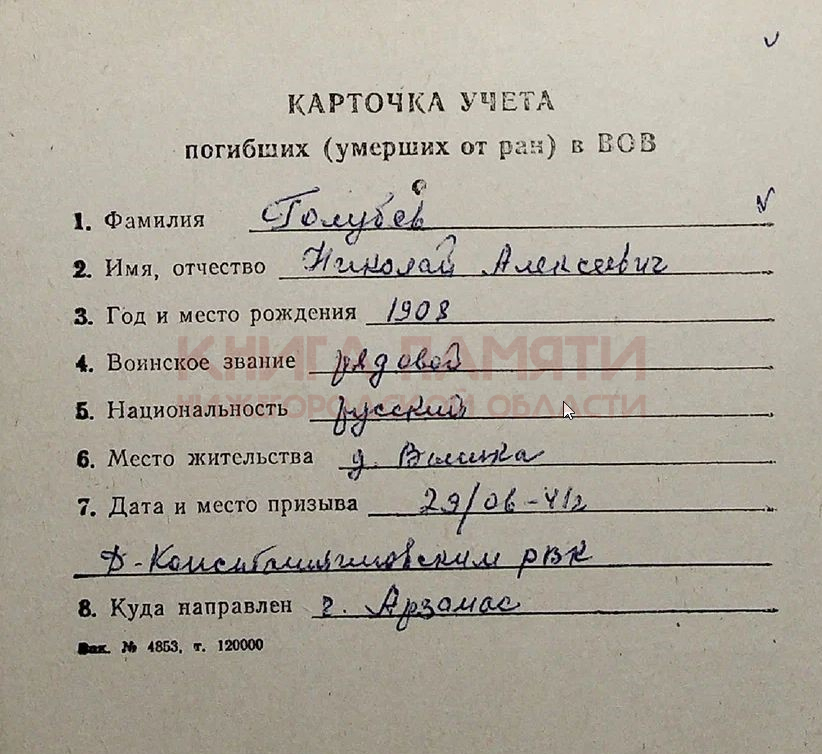 КАРТОЧКА УЧЕТА
погибших (умерших от ран) в ВОВ
1. Фамилия Голубев
2. Имя, отчество Николай Алексеевич
3. Год и место рождения 1908
4. Воинское звание рядовой
КНИГА ПАМЯТИ
5. Национальность русский
НИЖЕГОРОДСКОЙ ОБЛАСТИ
6. Место жительства д.
7. Дата и место призыва 29/06-41г
Д-Константиновским РВК
8. Куда направлен г. Арзамас
Зак. № 4853, т. 120000